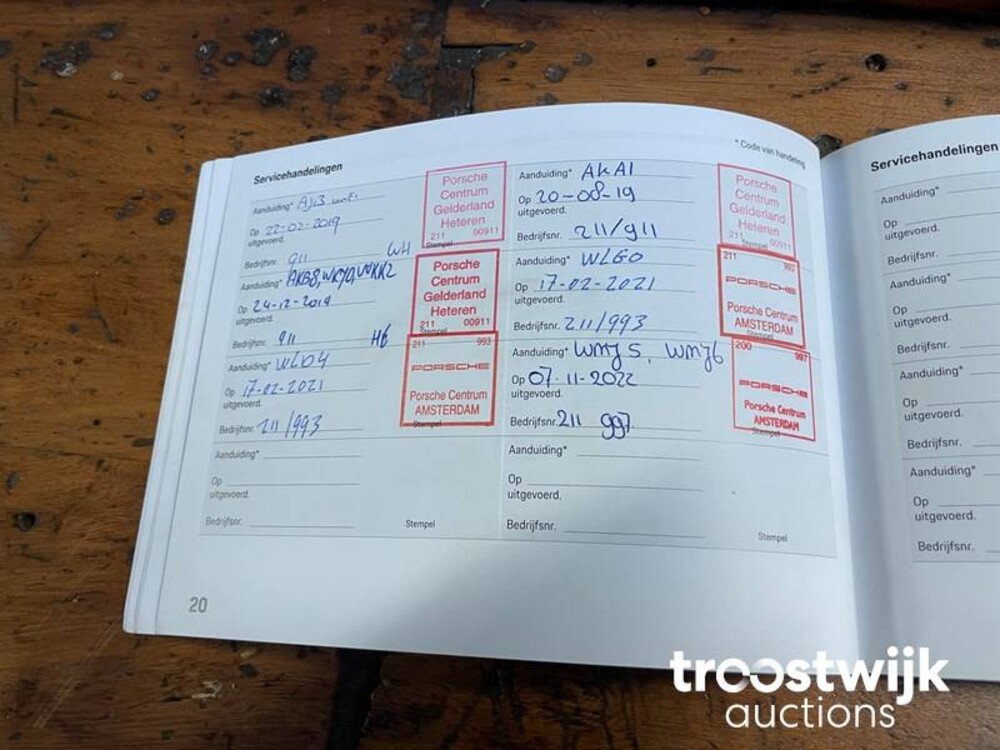 * Code van handeling
Servicehandelingen
Aanduiding*
Op 22-02-2019
uitgevoerd.
Bedrijfsnr. 911 WH
Porsche
Centrum
Gelderland
Heteren
211 00911
Stempel
Aanduiding* AKB8, WKY0, WKK2
Op 24-12-2019
uitgevoerd.
Bedrijfsnr. 911 H6
Porsche
Centrum
Gelderland
Heteren
211 00911
Stempel
Aanduiding* WLD4
Op 17-02-2021
uitgevoerd.
Bedrijfsnr. 211/993
211 993
PORSCHE
Porsche Centrum
AMSTERDAM
Stempel
Aanduiding*
Op
uitgevoerd.
Bedrijfsnr.
Stempel
Aanduiding* AKA1
Op 20-08-19
uitgevoerd.
Bedrijfsnr. 211/911
Porsche
Centrum
Gelderland
Heteren
211 00911
Stempel
Aanduiding* WLG0
Op 17-02-2021
uitgevoerd.
Bedrijfsnr. 211/993
211 993
PORSCHE
Porsche Centrum
AMSTERDAM
Aanduiding* WMJ5, WMJ6
Op 07-11-2022
uitgevoerd.
Bedrijfsnr. 211 997
200 997
PORSCHE
Porsche Centrum
AMSTERDAM
Stempel
Aanduiding*
Op
uitgevoerd.
Bedrijfsnr.
Stempel
20
Servicehandelingen
Aanduiding*
Op
uitgevoerd.
Bedrijfsnr.
Aanduiding*
Op
uitgevoerd.
Bedrijfsnr.
Aanduiding*
Op
uitgevoerd.
Bedrijfsnr.
Aanduiding*
Op
uitgevoerd.
Bedrijfsnr.
troostwijk
auctions